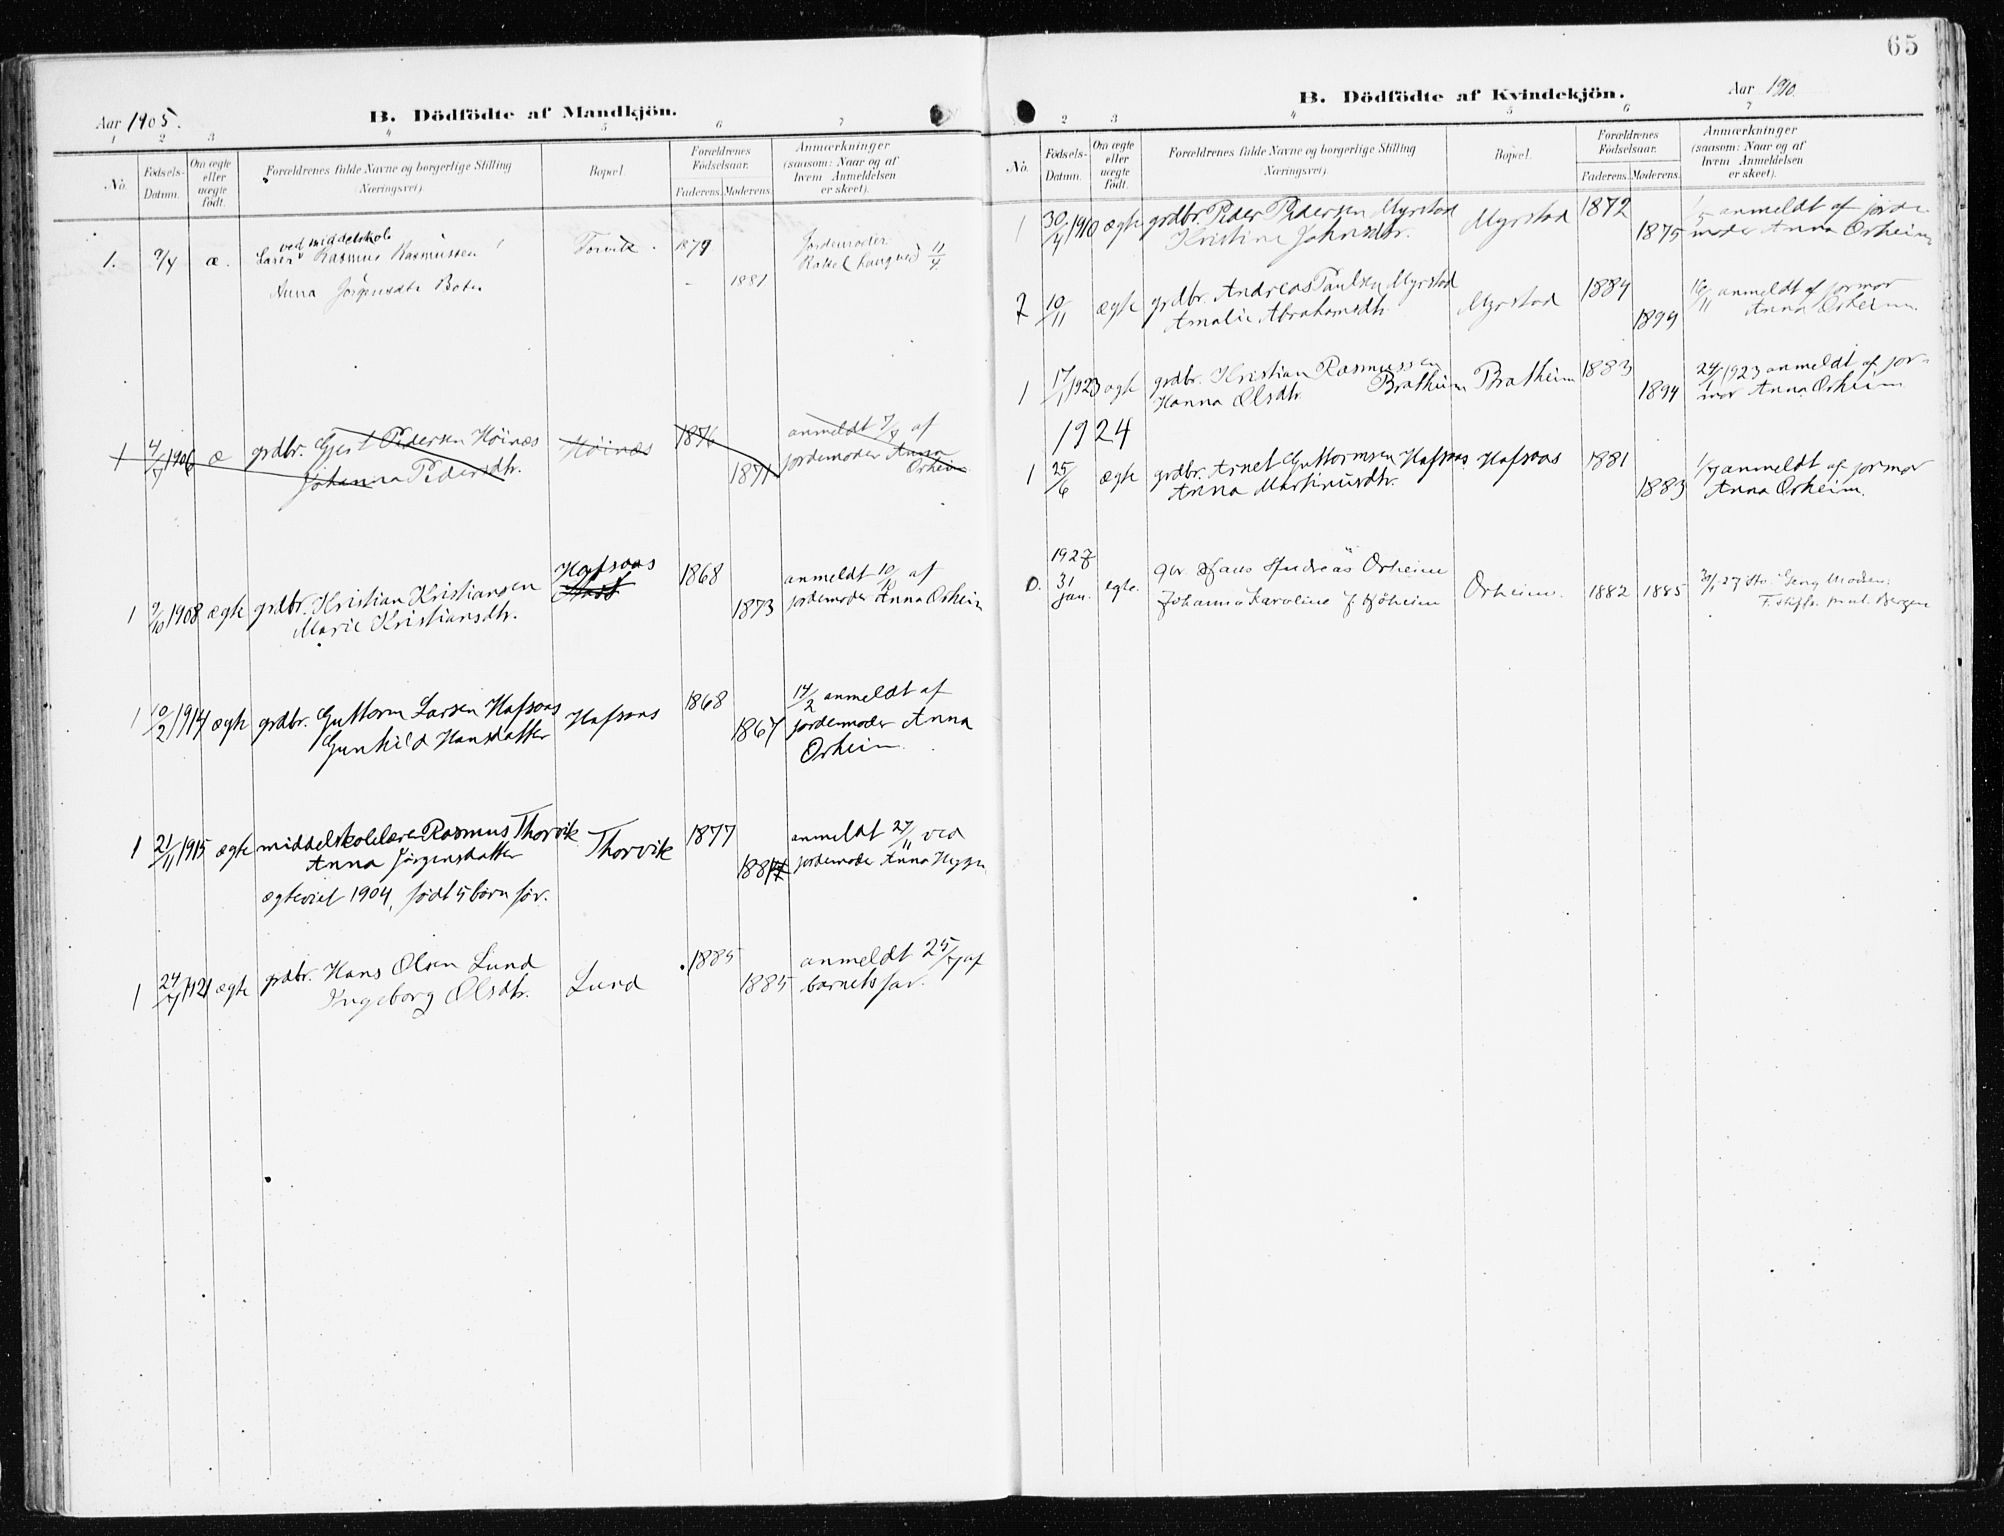 65
Aar 1905.
B. Dödfödte af Mandkjön.
1 2 3 4 5 6 7
No.
Födsels-
Datum.
Om ægte
eller
uægte
födt.
Forældrenes fulde Navne og borgerlige Stilling
(Næringsvei)
Bopæl.
Forældrenes
Födselsaar.
Faderens. Moderens.
Anmærkninger
(saasom: Naar og af
hvem Anmeldelsen
er skeet).
ved middelskole
1. 9/4 æ. Lærer Rasmus Rasmussen Torvik. 1877 Jordemoder
Anna Jörgensdtr 1881 Rakel 11/4
1 4/7 1906 æ grdbr. Gjert Pedersen Höinæs Höinæs 1876 anmeldt 7/8 af
Johanna Pedersdtr. 1871 jordemoder Anna
Orheim
Hafsaas
1 9/10 1908 ægte grdbr. Kristian Kristiansen 1868 anmeldt 10/10 af
Marie Kristiansdtr. 1873 jordemoder Anna Orheim
1 10/2 1914 ægte grdbr. Guttorm Larsen Hafsaas Hafsaas 1868 14/2 anmeldt af
Gunhild Hansdatter 1867 jordemoder Anna
Orheim.
1 21/11 1915 ægte middelskolelærer Rasmus Thorvik Thorvik 1877 anmeldt 27/11 ved
Anna Jörgensdatter 1881 jordemoder Anna
ægteviet 1904, födt 5 börn för.
1 24/7 1921 ægte grdbr. Hans Olsen Lund Lund 1885 anmeldt 25/7 af
Ingeborg Olsdtr. 1885 barnets far.
B. Dödfödte af Kvindekjön.
Aar 1910.
2 3 4 5 6 7
No.
Födsels-
Datum.
Om ægte
eller
uægte
födt.
Forældrenes fulde Navne og borgerlige Stilling
(Næringsvei)
Bopæl.
Forældrenes
Födselsaar.
Faderens. Moderens.
Anmærkninger
(saasom: Naar og af
hvem Anmeldelsen
er skeet).
1 30/4 1910 ægte grdbr. Peder Pedersen Myrstad Myrstad 1872 1/5 anmeldt af jorde-
Kristine Johnsdtr. 1875 moder Anna Orheim
2 10/11 ægte grdbr. Andreas Paulsen Myrstad Myrstad 1884 16/11 anmeldt af jormor
Amalie Abrahamsdtr. 1899 Anna Orheim.
1 17/1 1923 ægte grdbr. Kristian Rasmussen
Bratheim Bratheim 1883 24/1 1923 anmeldt af jor-
Hanna Olsdtr. 1894 mor Anna Orheim
1924
1 25/6 ægte grdbr. Arnet Guttormsen Hafsaas Hafsaas 1881 1/7 anmeldt af jormor
Anna Martinusdtr. 1883 Anna Orheim.
1927
0. 31 jan. egte. Hans Andreas Orheim
Johanna Karoline Orheim. 1882 1885
Bergen